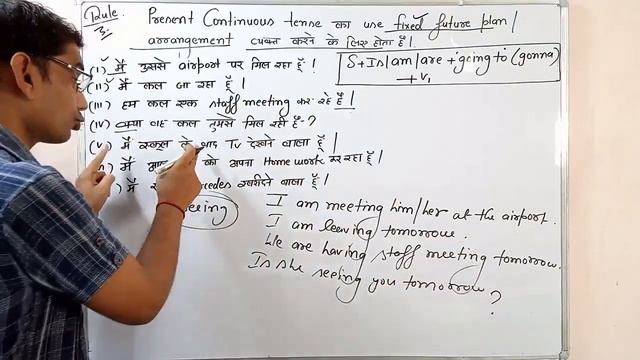 Rule 3. Present Continuous tense का use fixed future plan/
arrangement व्यक्त करने के लिए होता है।
(i) मैं उससे airport पर मिल रहा हूँ।
S+Is/am/are + going to (gonna)
+V₁
(ii) मैं कल जा रहा हूँ।
(iii) हम कल एक staff meeting कर रहे हैं।
(iv) क्या वह कल तुमसे मिल रही है?
(v) मैं स्कूल के बाद TV देखने वाला हूँ।
) मैं को अपना Homework कर रहा हूँ।
) मैं खरीदने वाला हूँ।
eeing
I am meeting him/her at the airport.
I am leaving tomorrow.
We are having staff meeting tomorrow.
Is she seeing you tomorrow?